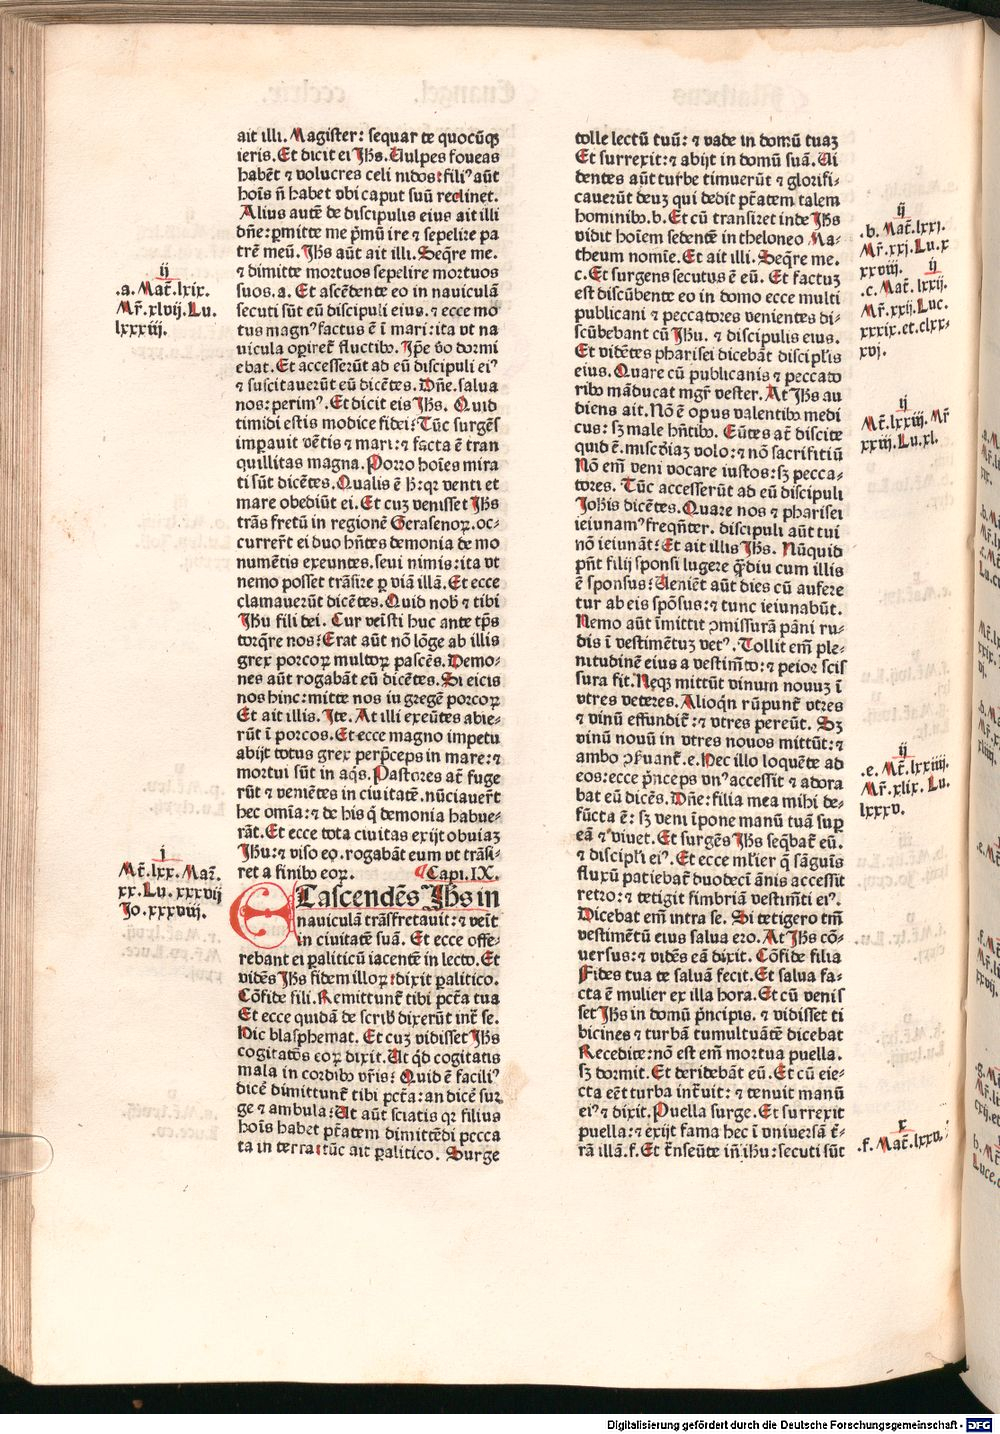 ait illi. Magister: sequar te quocūqꝫ
ieris. Et dicit ei Jh̄s. Vulpes foueas
habēt ⁊ volucres celi nidos: filiꝰ aūt
hoīs n̄ habet vbi caput suū reclinet.
Alius autē de discipulis eius ait illi
dn̄e: ꝑmitte me pͥmū ire ⁊ sepelire pa
trē meū. Jh̄s aūt ait illi. Seqͣre me.
⁊ dimitte mortuos sepelire mortuos
suos. a. Et ascēdente eo in nauiculā
secuti sūt eū discipuli eius. ⁊ ecce mo
tus magnꝰ factus ē ī mari: ita vt na
uicula oꝑiret᷑ fluctibꝰ. Jp̄e v̄o dormi
ebat. Et accesserūt ad eū discipuli eiꝰ
⁊ suscitauerūt eū dicētes. Dn̄e. salua
nos: perimꝰ. Et dicit eis Jh̄s. Quid
timidi estis modice fidei? Tūc surgēs
imꝑauit vētis ⁊ mari: ⁊ facta ē tran
quillitas magna. Porro hoīes mira
ti sūt dicētes. Qualis ē h̄: qꝛ venti et
mare obediūt ei. Et cuꝫ venisset Jh̄s
trās fretū in regionē Gerasenoꝝ. oc-
currer̄t ei duo hn̄tes demonia de mo
numētis exeuntes. seui nimis: ita vt
nemo posset trāsire ꝑ viā illā. Et ecce
clamauerūt dicētes. Quid nob̄ ⁊ tibi
Jh̄u fili dei. Cur veīsti huc ante tp̄s
torqͣre nos? Erat aūt nō lōge ab illis
grex porcoꝝ multoꝝ pascēs. Demo-
nes aūt rogabāt eū dicētes. Si eicis
nos hinc: mitte nos iu gregē porcoꝝ
Et ait illis. Ite. At illi exeūtes abie-
rūt ī porcos. Et ecce magno impetu
abijt totus grex perp̄ceps in mare: ⁊
mortui sūt in aqͥs. Pastores at̄ fuge
rūt ⁊ veniētes in ciuitatē. nūciauer̄t
hec om̄ia: ⁊ de his qͥ demonia habue-
rāt. Et ecce tota ciuitas exijt obuiaꝫ
Jh̄u: ⁊ viso eo. rogabāt eum vt trāsi-
ret a finibꝰ eoꝝ. Capi. IX.
ET ascendēs Jh̄s in
nauiculā trāsfretauit: ⁊ veīt
in ciuitatē suā. Et ecce offe-
rebant ei ꝑaliticū iacentē in lecto. Et
vidēs Jh̄s fidem illoꝝ: dixit ꝑalitico.
Cōfide fili. Remittunt᷑ tibi pctā tua
Et ecce quidā de scribꝭ dixerūt int᷑ se.
Hic blasphemat. Et cuꝫ vidisset Jh̄s
cogitatōs eoꝝ dixit. Ut qͥd cogitatis
mala in cordibꝰ vr̄is? Quid ē faciliꝰ
dicē dimittunt᷑ tibi pctā: an dicē sur
ge ⁊ ambula? Ut aūt sciatis qꝛ filius
hoīs habet ptātem dimittēdi pecca
ta in terra: tūc ait ꝑalitico. Surge
tolle lectū tuū: ⁊ vade in domū tuaꝫ
Et surrexit: ⁊ abijt in domū suā. Ui
dentes aūt turbe timuerūt ⁊ glorifi-
cauerūt deuꝫ qui dedit ptātem talem
hominibꝰ. b. Et cū transiret inde Jh̄s
vidit hoīem sedentē in theloneo Ma-
theum nomīe. Et ait illi. Seqͣre me.
c. Et surgens secutus ē eū. Et factuꝫ
est discūbente eo in domo ecce multi
publicani ⁊ peccatores venientes di-
scūbebant cū Jh̄u. ⁊ discipulis eius.
Et vidētes pharisei dicebāt discipl̄is
eius. Quare cū publicanis ⁊ peccato
ribꝰ māducat mgr̄ vester. At Jh̄s au
diens ait. Nō ē opus valentibꝰ medi
cus: sꝫ male hn̄tibꝰ. Eūtes at̄ discite
quid ē. mīscdiaꝫ volo: ⁊ nō sacrifitiū
Nō em̄ veni vocare iustos: sꝫ pecca-
tores. Tūc accesserūt ad eū discipuli
Joh̄is dicētes. Quare nos ⁊ pharisei
ieiunamꝰ freqn̄ter. discipuli aūt tui
nō ieiunāt? Et ait illis Jh̄s. Nūquid
pn̄t filij sponsi lugere qͣ̄diu cum illis
ē sponsus? Ueniēt aūt dies cū aufere
tur ab eis spōsus: ⁊ tunc ieiunabūt.
Nemo aūt īmittit ↄmissurā pāni ru-
dis ī vestimētuꝫ vetꝰ. Tollit em̄ ple-
nitudinē eius a vestim̄to: ⁊ peior scis
sura fit. Neqꝫ mittūt vinum nouuꝫ ī
vtres veteres. Alioqͥn rūpunt᷑ vtres
⁊ vinū effundit᷑: ⁊ vtres pereūt. Sꝫ
vinū nouū in vtres nouos mittūt: ⁊
ambo ↄẛuant᷑. e. Hec illo loquēte ad
eos: ecce pͥnceps vnꝰ accessit ⁊ adora
bat eū dicēs. Dn̄e: filia mea mihi de-
fūcta ē: sꝫ veni īpone manū tuā suꝑ
eā ⁊ viuet. Et surgēs Jh̄s seqͣbat᷑ eū.
⁊ discipl̄i eiꝰ. Et ecce ml̄ier q̄ sāguīs
fluxū patiebat᷑ duodecī ānis accessit
retro: ⁊ tetigit fimbriā vestim̄ti eiꝰ.
Dicebat em̄ intra se. Si tetigero tm̄
vestimētū eius salua ero. At Jh̄s cō-
uersus: ⁊ vidēs eā dixit. Cōfide filia
Fides tua te saluā fecit. Et salua fa-
cta ē mulier ex illa hora. Et cū venis
set Jh̄s in domū pͥncipis. ⁊ vidisset ti
bicines ⁊ turbā tumultuātē dicebat
Recedite: nō est em̄ mortua puella.
sꝫ dormit. Et deridebāt eū. Et cū eie-
cta eēt turba int᷑uit: ⁊ tenuit manū
eiꝰ ⁊ dixit. Puella surge. Et surrexit
puella: ⁊ exijt fama hec ī vniuersā t᷑-
rā illā. f. Et t᷑nseūte in̄ ih̄u: secuti sūt
ij
.a. Mat᷑. lxix.
Mr̄. xlvij. Lu.
lxxxiij.
i
Mt᷑. lxx. Mat᷑.
xx. Lu. xxxvij
Jo. xxxviij.
ij
.b. Mat᷑. lxxj.
Mr̄. xxj. Lu. x
xxviij. ij
.c. Mat᷑. lxxij.
Mr̄. xxij. Luc.
xxxix. et. clxx-
xvj.
ij
Mt᷑. lxxiij. Mr̄
xxiij. Lu. xl.
ij
.e. Mt᷑. lxxiiij.
Mr̄. xlix. Lu.
lxxxv.
x
.f. Mat᷑. lxxv.
Digitalisierung gefördert durch die Deutsche Forschungsgemeinschaft - DFG